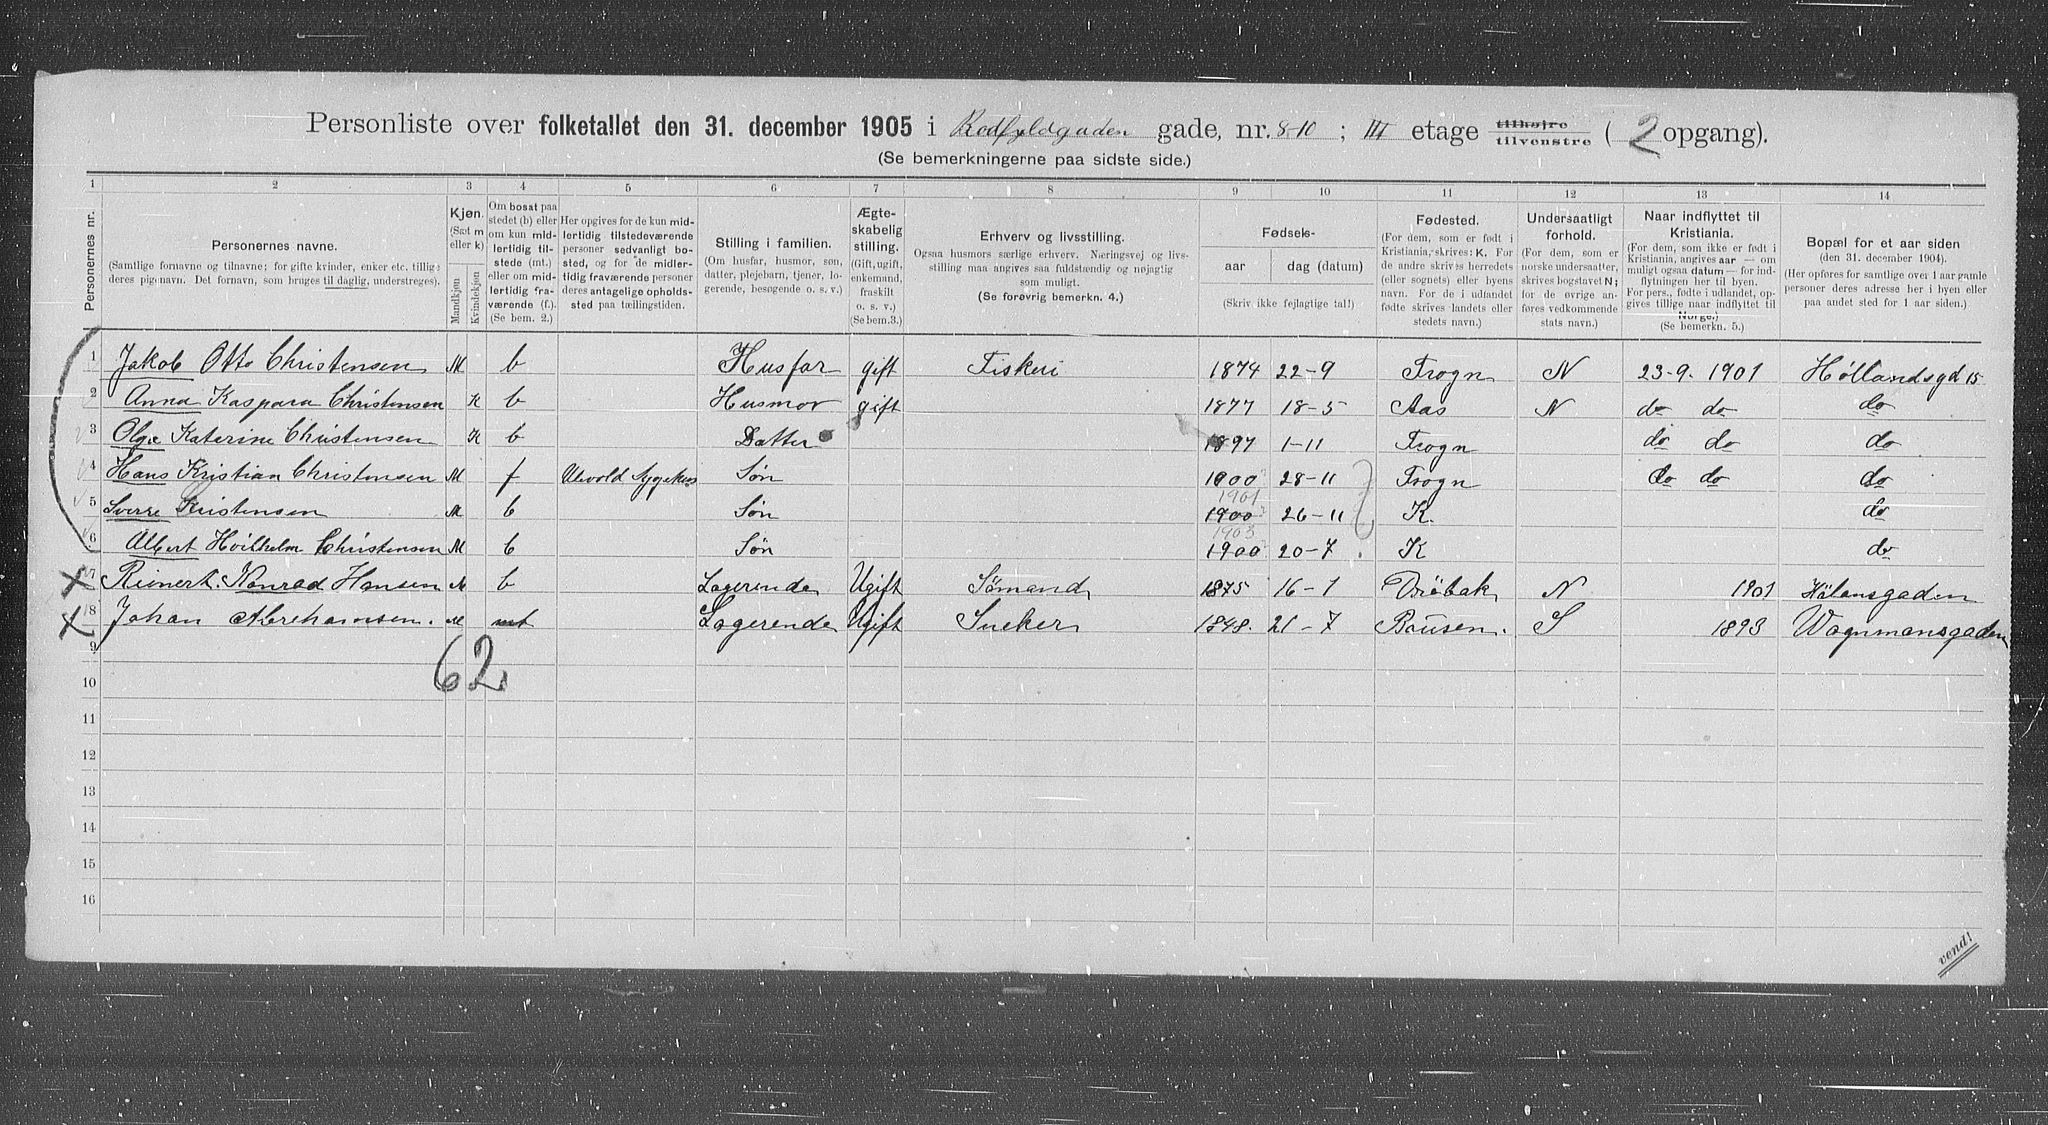 Personliste over folketallet den 31. december 1905 i Rodfyldgaden gade, nr. 8-10 ; III etage tilhøjre tilvenstre ( 2 opgang).
(Se bemerkningerne paa sidste side.)
1 2 3 4 5 6 7 8 9 10 11 12 13 14
Personernes nr.
Personernes navne.
(Samtlige fornavne og tilnavne; for gifte kvinder, enker etc. tillige deres pigenavn. Det fornavn, som bruges til daglig, understreges).
Kjøn.
(Sæt m eller k)
Mandkjøn
Kvindekjøn
Om bosat paa stedet (b) eller om kun midlertidig tilstede (mt.) eller om midlertidig fraværende (f.) (Se bem. 2.)
Her opgives for de kun midlertidig tilstedeværende personer sedvanligt bosted, og for de midlertidig fraværende personer deres antagelige opholdssted paa tællingstiden.
Stilling i familien.
(Om husfar, husmor, søn, datter, plejebarn, tjener, logerende, besøgende o. s. v.)
Ægteskabelig stilling.
(Gift, ugift, enkemand, fraskilt o. s. v.) (Se bem. 3.)
Erhverv og livsstilling.
Ogsaa husmors særlige erhverv. Næringsvej og livsstilling maa angives saa fuldstændig og nøjagtig som muligt.
(Se forøvrig bemerkn. 4.)
Fødsels-
aar dag (datum)
(Skriv ikke fejlagtige tal!)
Fødested.
(For dem, som er født i Kristiania, skrives: K. For de andre skrives herredets (eller sognets) eller byens navn. For de i udlandet fødte skrives landets eller stedets navn.)
Undersaatligt forhold.
(For dem, som er norske undersaatter, skrives bogstavet N; for de øvrige anføres vedkommende stats navn.)
Naar indflyttet til Kristiania.
(For dem, som ikke er født i Kristiania, angives aar — om muligt ogsaa datum — for indflytningen her til byen. For pers., fødte i udlandet, opgives tillige naar indflyttet til Norge.)
(Se bemerkn. 5.)
Bopæl for et aar siden
(den 31. december 1904).
(Her opføres for samtlige over 1 aar gamle personer deres adresse her i byen eller paa andet sted for 1 aar siden.)
1 Jakob Otto Christensen M b Husfar gift Fiskeri 1874 22-9 Frogn N 23-9. 1901 Høllandsgd 15
2 Anna Kaspara Christensen K b Husmor gift 1877 18-5 Aas N do do do
3 Olga Katerine Christensen K b Datter 1897 1-11 Frogn do do do
4 Hans Kristian Christensen M f Ulevold Sygehus Søn 1900 28-11 Frogn do do do
1901
5 Sverre Kristensen M b Søn 1900 26-11 K. do
1903
6 Albert Hvilhelm Christensen M b Søn 1900 20-7 K do
7 Reinert. Konrad Hansen M b Logerende Ugift Sømand 1875 16-1 Drøbak N 1901 Hølansgaden
8 Johan Abrehamsen. M mt Logerende Ugift Sneker 1848. 21-7 Bousen. S 1893 Wagnmansgaden
9
62
10
11
12
13
14
15
16
vend!